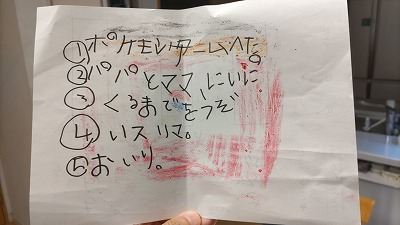 ①ポケモンターにいくへた。
②パパとママ にいに
③くるまで をうぞ
④いスリマ。
⑤おいり。